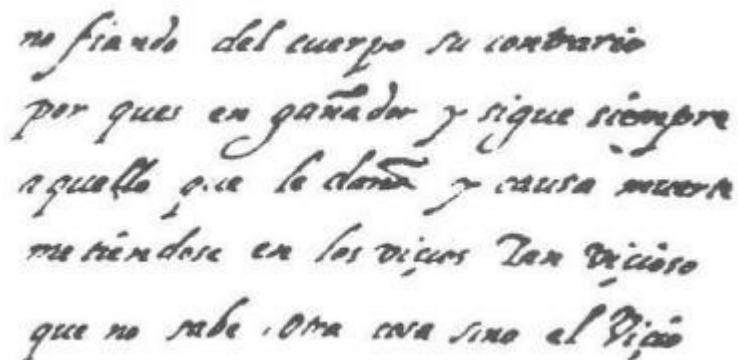 no fiando del cuerpo su contrario
por ques en gañador y sigue siempre
aquello que le daña y causa muerte
metiendose en los viçios Tan viçioso
que no sabe . Otra cosa sino el Viçio